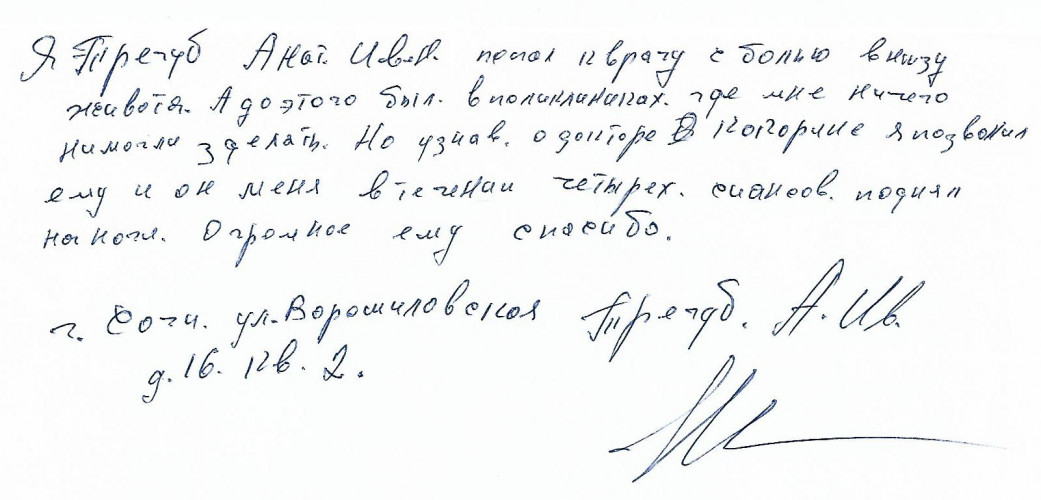 Я Трегуб Анат. Ив.
попал к врачу с болью внизу
живота. А до этого был. в поликлиниках. где мне ничего
нимогли зделать. Но узнав. о докторе В Которине я позвонил
ему и он меня в течении четырех. сиансов. поднял
на ноги. Огромное ему спасибо.
г. Сочи. ул. Ворошиловская Трегуб. А. Ив.
д. 16. Кв. 2.